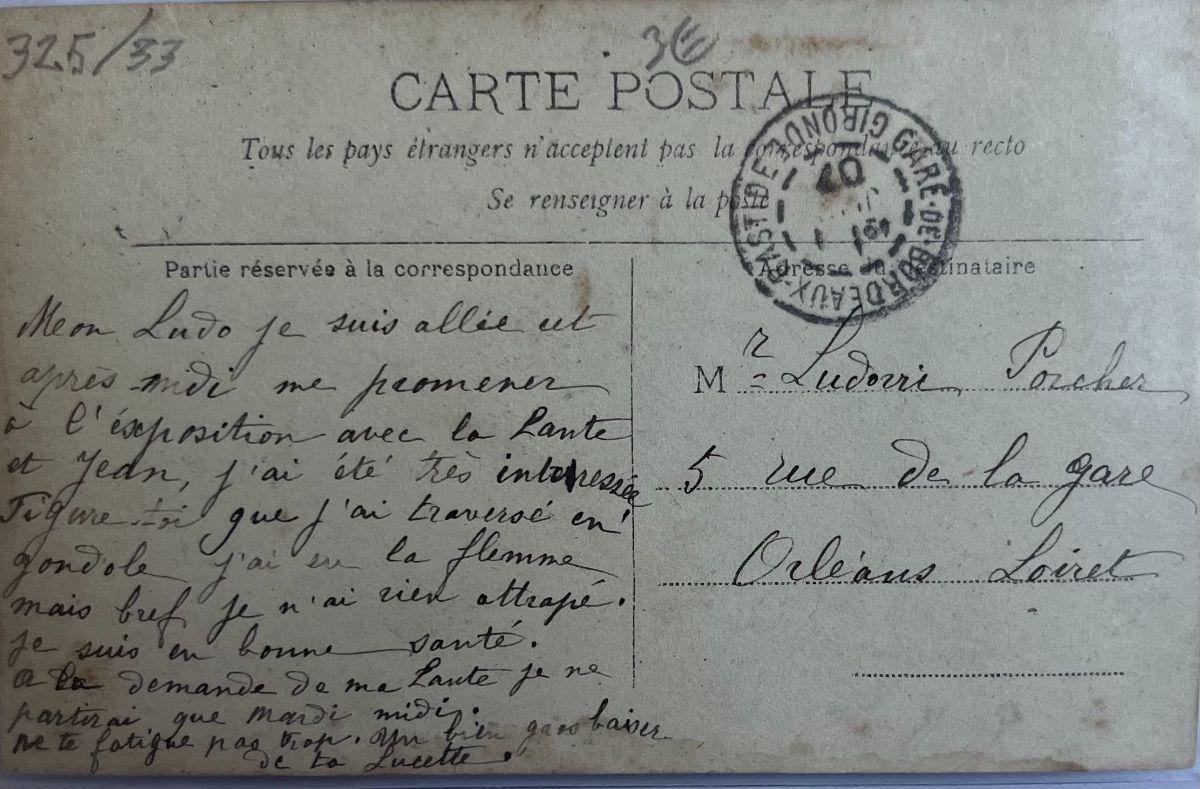 325/33
3€
CARTE POSTALE
Tous les pays étrangers n'acceptent pas la correspondance au recto
Se renseigner à la poste
GARE-DE-BORDEAUX-BASTIDE GIRONDE
07
Partie réservée à la correspondance
Adresse du destinataire
Mon Ludo je suis allée cet
après-midi me promener
à l'éxposition avec la Tante
et Jean, j'ai été très intéressée
Figure-toi que j'ai traversé en
gondole, j'ai eu la flemme
mais bref je n'ai rien attrapé.
je suis en bonne santé.
a la demande de ma Tante je ne
partirai que mardi midi.
ne te fatigue pas trop. Un bien gros baiser
de ta Lucette.
Mr Ludovic Porcher
5 rue de la gare
Orléans Loiret